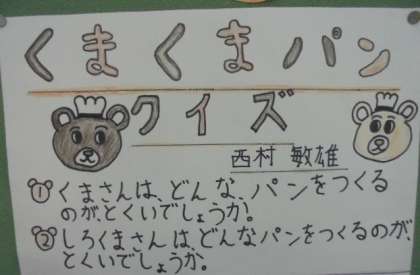 くまくまパン
クイズ
西村 敏雄
① くまさんは、どんな、パンをつくる
のが、とくいでしょうか。
② しろくまさんは、どんなパンをつくるのが、
とくいでしょうか。